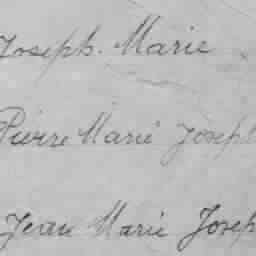 Joseph. Marie
Pierre Marie Joseph
Jean Marie Joseph